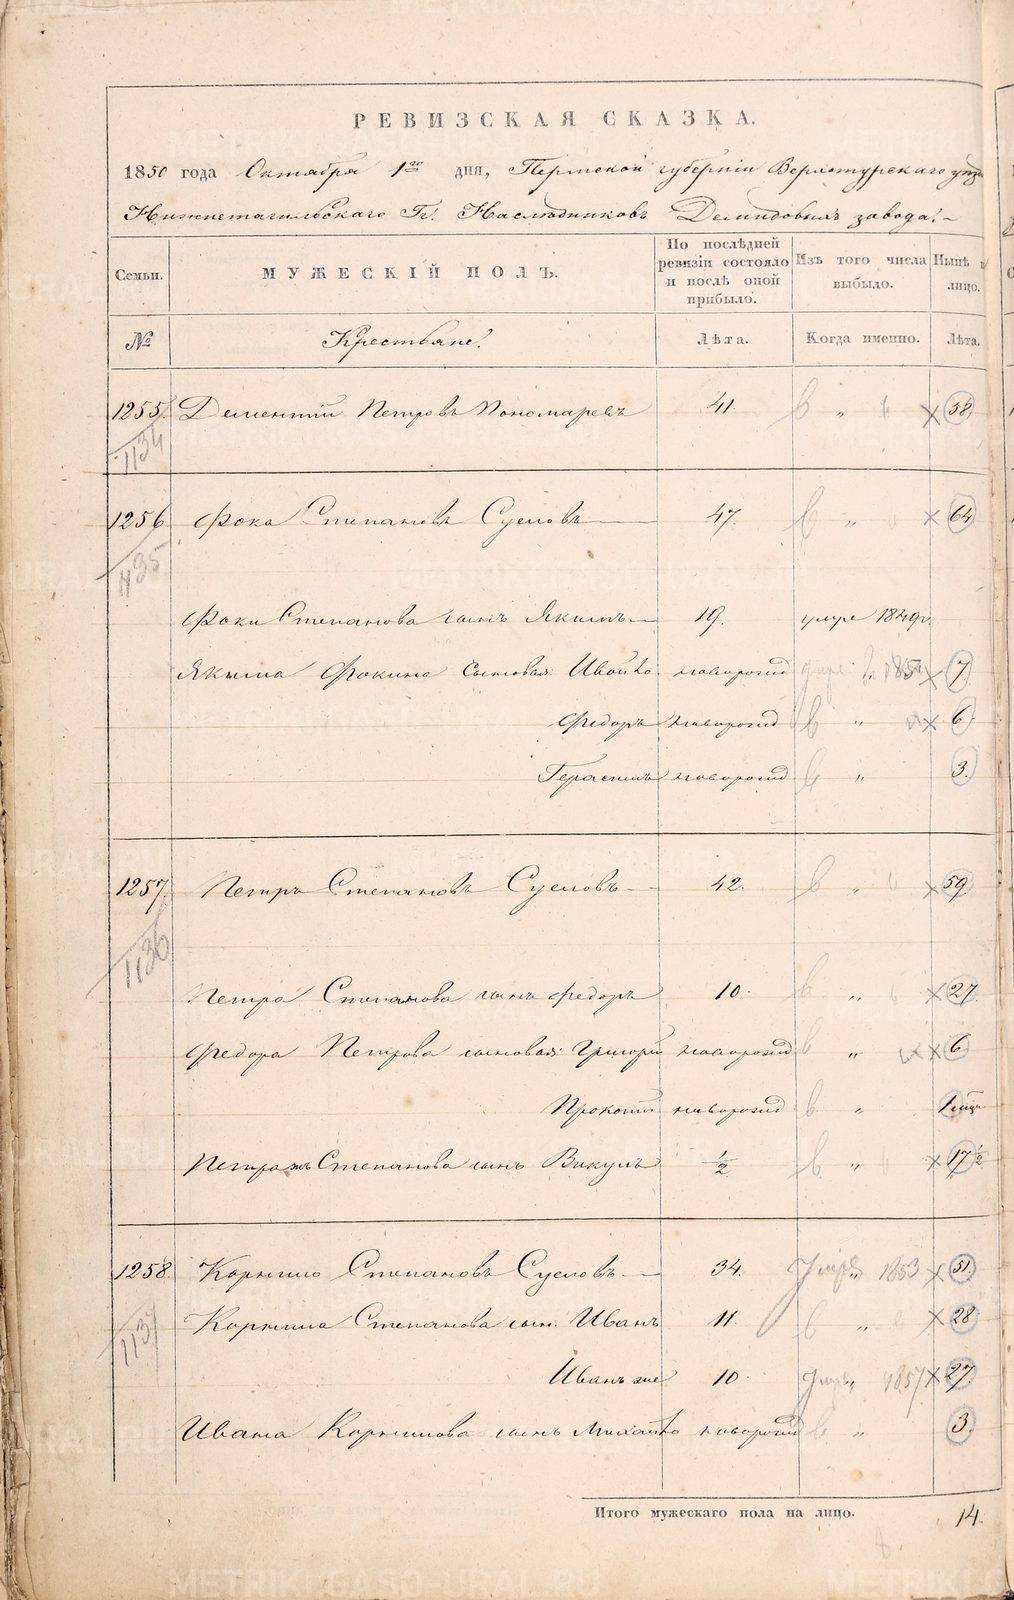 РЕВИЗСКАЯ СКАЗКА.
1850 года Октября 1го дня, Пермской губернии Верхотурскаго уезда
Нижнетагильскаго Гг. Наследниковъ Демидовыхъ завода.
Семьи. МУЖЕСКІЙ ПОЛЪ. По послѣдней ревизіи состояло и послѣ оной прибыло. Изъ того числа выбыло. Нынѣ на лицо.
№ Крестьяне. Лѣта. Когда именно. Лѣта.
1255. Дементій Петровъ Пономаревъ 41. " 58
1134
1256 Фока Степановъ Сусловъ 47. " 64
1135
Фоки Степанова сынъ Якимъ 19. умре 1849г.
Якима Фокина сыновья Ивойло новорожд " 7
Федоръ новорожд " 6
Герасимъ новорожд " 3.
1257. Петръ Степановъ Сусловъ 42. " 59
1136
Петра Степанова сынъ Федоръ 10. " 27.
Федора Петрова сыновья: Григорій новорожд " 6
Прокопій новорожд " 1 мѣц
Петра жъ Степанова сынъ Викулъ 1/2 " 17 1/2
1258. Корнило Степановъ Сусловъ 34. Умре " 1853 51.
1137
Корнила Степанова сын. Иванъ 11. " 28
Иванъ же 10. Умре " 1857 27.
Ивана Корнилова сынъ Михайло новорожд " 3.
Итого мужескаго пола на лицо. 14.
METRIKI.GASO-URAL.RU